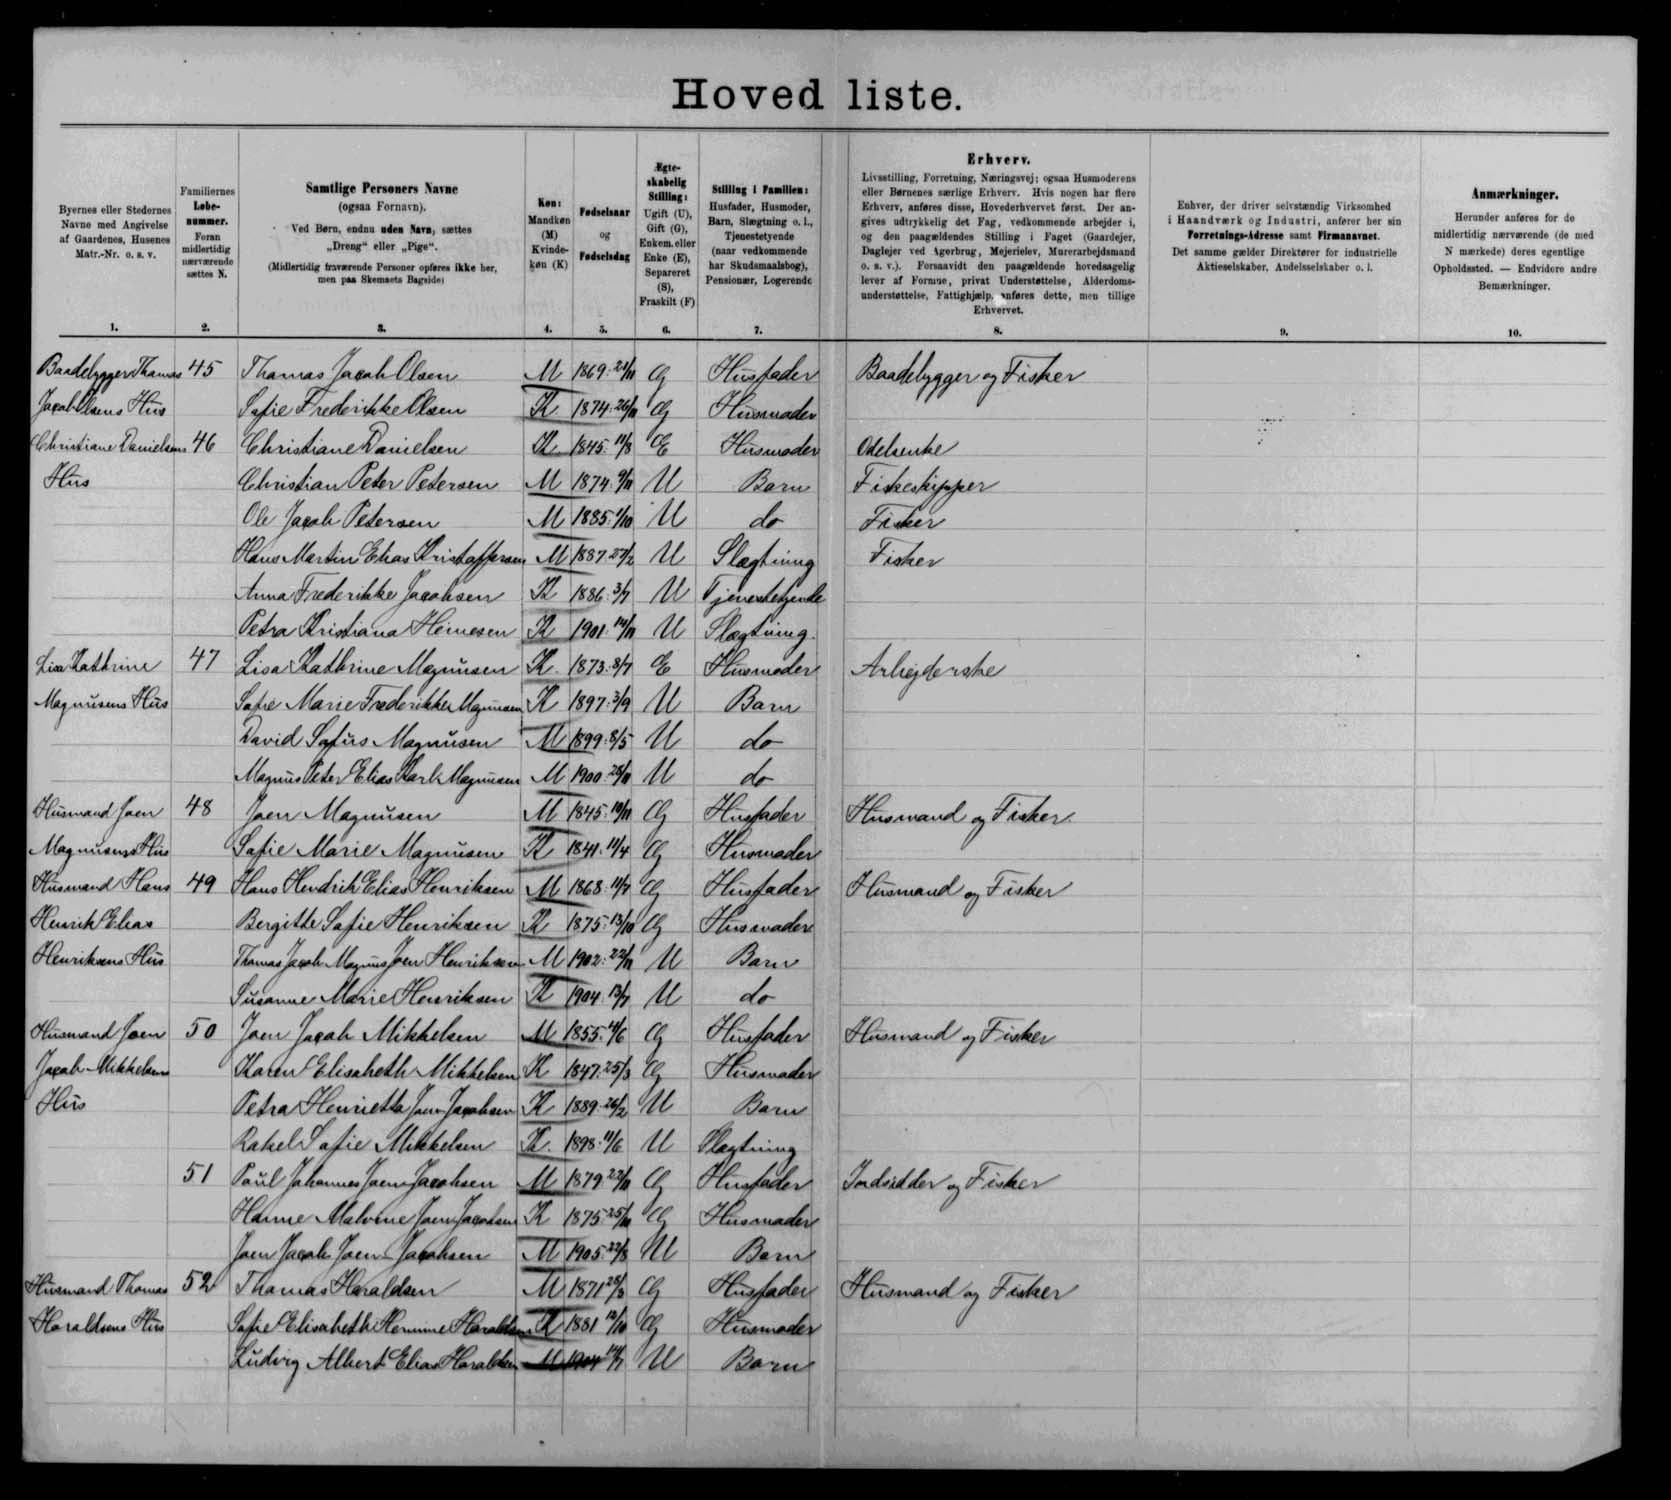 Hoved liste.
Byernes eller Stedernes
Navne med Angivelse
af Gaardenes, Husenes
Matr.-Nr. o. s. v.
Familiernes
Løbe-
nummer.
Foran
midlertidig
nærværende
sættes N.
Samtlige Personers Navne
(ogsaa Fornavn).
Ved Børn, endnu uden Navn, sættes
„Dreng“ eller „Pige“.
(Midlertidig fraværende Personer opføres ikke her,
men paa Skemaets Bagside)
Køn:
Mandkøn
(M)
Kvinde-
køn (K)
Fødselsaar
og
Fødselsdag
Ægte-
skabelig
Stilling:
Ugift (U),
Gift (G),
Enkem. eller
Enke (E),
Separeret
(S),
Fraskilt (F)
Stilling i Familien:
Husfader, Husmoder,
Barn, Slægtning o. l.,
Tjenestetyende
(naar vedkommende
har Skudsmaalsbog),
Pensionær, Logerende
Erhverv.
Livsstilling, Forretning, Næringsvej; ogsaa Husmoderens
eller Børnenes særlige Erhverv. Hvis nogen har flere
Erhverv, anføres disse, Hovederhvervet først. Der an-
gives udtrykkelig det Fag, vedkommende arbejder i,
og den paagældendes Stilling i Faget (Gaardejer,
Daglejer ved Agerbrug, Mejerielev, Murerarbejdsmand
o. s. v.). Forsaavidt den paagældende hovedsagelig
lever af Formue, privat Understøttelse, Alderdoms-
understøttelse, Fattighjælp, anføres dette, men tillige
Erhvervet.
Enhver, der driver selvstændig Virksomhed
i Haandværk og Industri, anfører her sin
Forretnings-Adresse samt Firmanavnet.
Det samme gælder Direktører for industrielle
Aktieselskaber, Andelsselskaber o. l.
Anmærkninger.
Herunder anføres for de
midlertidig nærværende (de med
N mærkede) deres egentlige
Opholdssted. — Endvidere andre
Bemærkninger.
1. 2. 3. 4. 5. 6. 7. 8. 9. 10.
Baadebygger Thomas 45 Thomas Jacob Olsen M 1869 21/11 G Husfader Baadebygger og Fisker
Jacob Olsens Hus Sofie Frederikke Olsen K 1874 26/11 G Husmoder
Christiane Danielsens 46 Christiane Danielsen K 1845 11/8 E Husmoder
Hus Christian Peter Petersen M 1874 9/11 U Barn Fiskeskipper
Ole Jacob Petersen M 1885 1/10 U do Fisker
Hans Martin Elias Kristoffersen M 1887 27/2 U Slægtning Fisker
Anna Frederikke Jacobsen K 1886 3/7 U Tjenestetyende
Petra Kristiana Heinesen K 1901 14/11 U Slægtning.
Lisa Kathrine 47 Lisa Kathrine Magnusen K 1873 8/7 E Husmoder Arbejderske
Magnusens Hus Sofie Marie Frederikke Magnusen K 1897 3/9 U Barn
David Sofus Magnusen M 1899 8/5 U do
Magnus Peter Elias Karl Magnusen M 1900 28/11 U do
Husmand Joen 48 Joen Magnusen M 1845 10/11 G Husfader Husmand og Fisker.
Magnusens Hus Sofie Marie Magnusen K 1841 11/4 G Husmoder
Husmand Hans 49 Hans Hendrik Elias Henriksen M 1868 11/7 G Husfader Husmand og Fisker
Henrik Elias Bergitte Sofie Henriksen K 1875 13/10 G Husmoder
Henriksens Hus Thomas Jacob Magnus Joen Henriksen M 1902 22/11 U Barn
Susanne Marie Henriksen K 1904 13/7 U do
Husmand Joen 50 Joen Jacob Mikkelsen M 1855 11/6 G Husfader Husmand og Fisker
Jacob Mikkelsens Karen Elisabeth Mikkelsen K 1847 25/3 G Husmoder
Hus Petra Henrietta Joen-Jacobsen K 1889 26/2 U Barn
Rakel Sofie Mikkelsen K. 1898 11/6 U Slægtning
51 Poul Johannes Joen-Jacobsen M 1879 22/11 G Husfader Indsidder og Fisker
Hanne Malvine Joen-Jacobsen K 1875 25/10 G Husmoder
Joen Jacob Joen-Jacobsen M 1905 22/8 U Barn
Husmand Thomas 52 Thomas Haraldsen M 1871 28/3 G Husfader Husmand og Fisker
Haraldsens Hus Sofie Elisabeth Hermine Haraldsen K 1881 12/10 G Husmoder
Ludvig Albert Elias Haraldsen M 1904 14/7 U Barn